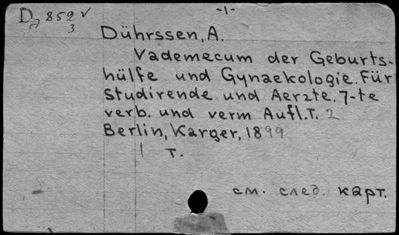 D 859 v -1-
2 3
Dührssen, A.
Vademecum der Geburts-
hülfe und Gynaekologie. Für
Studirende und Aerzte. 7-te
verb. und verm Aufl. T. 2
Berlin, Karger, 1899
1 т.
см. след. карт.